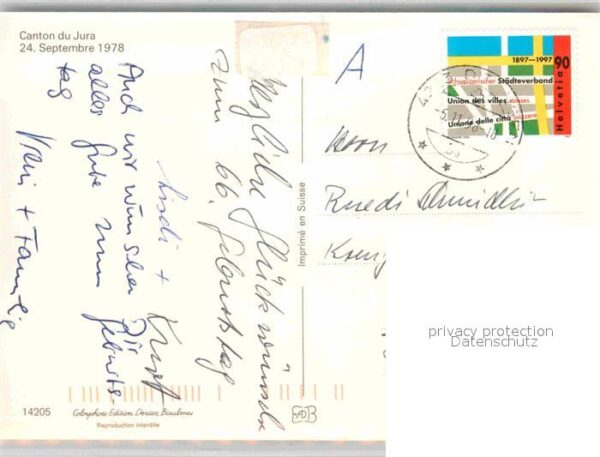 Canton du Jura
24. Septembre 1978
Herzliche Glückwünsche
zum 66. Geburtstag
Kurt
Auch wir wünschen Dir
alles Gute zum Geburts-
tag
Vreni + Familie
A
1897–1997
90
Helvetia
Schweizerischer Städteverband
Union des villes suisses
Unione delle città svizzere
Herrn
Ruedi
Imprimé en Suisse
14205
Colorphoto Edition Deriaz Baulmes
Reproduction interdite
EDB
privacy protection
Datenschutz